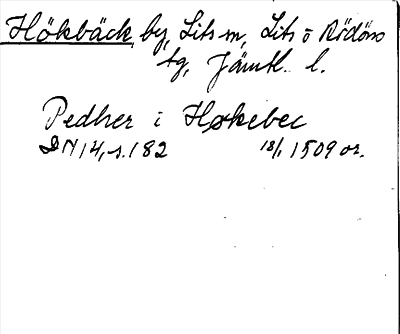 Hökbäck, by, Lits sn, Lits o Rödöns
tg, Jämtl. l.
Pedher i Høkebec
DN 14, s. 182 18/1 1509 or.